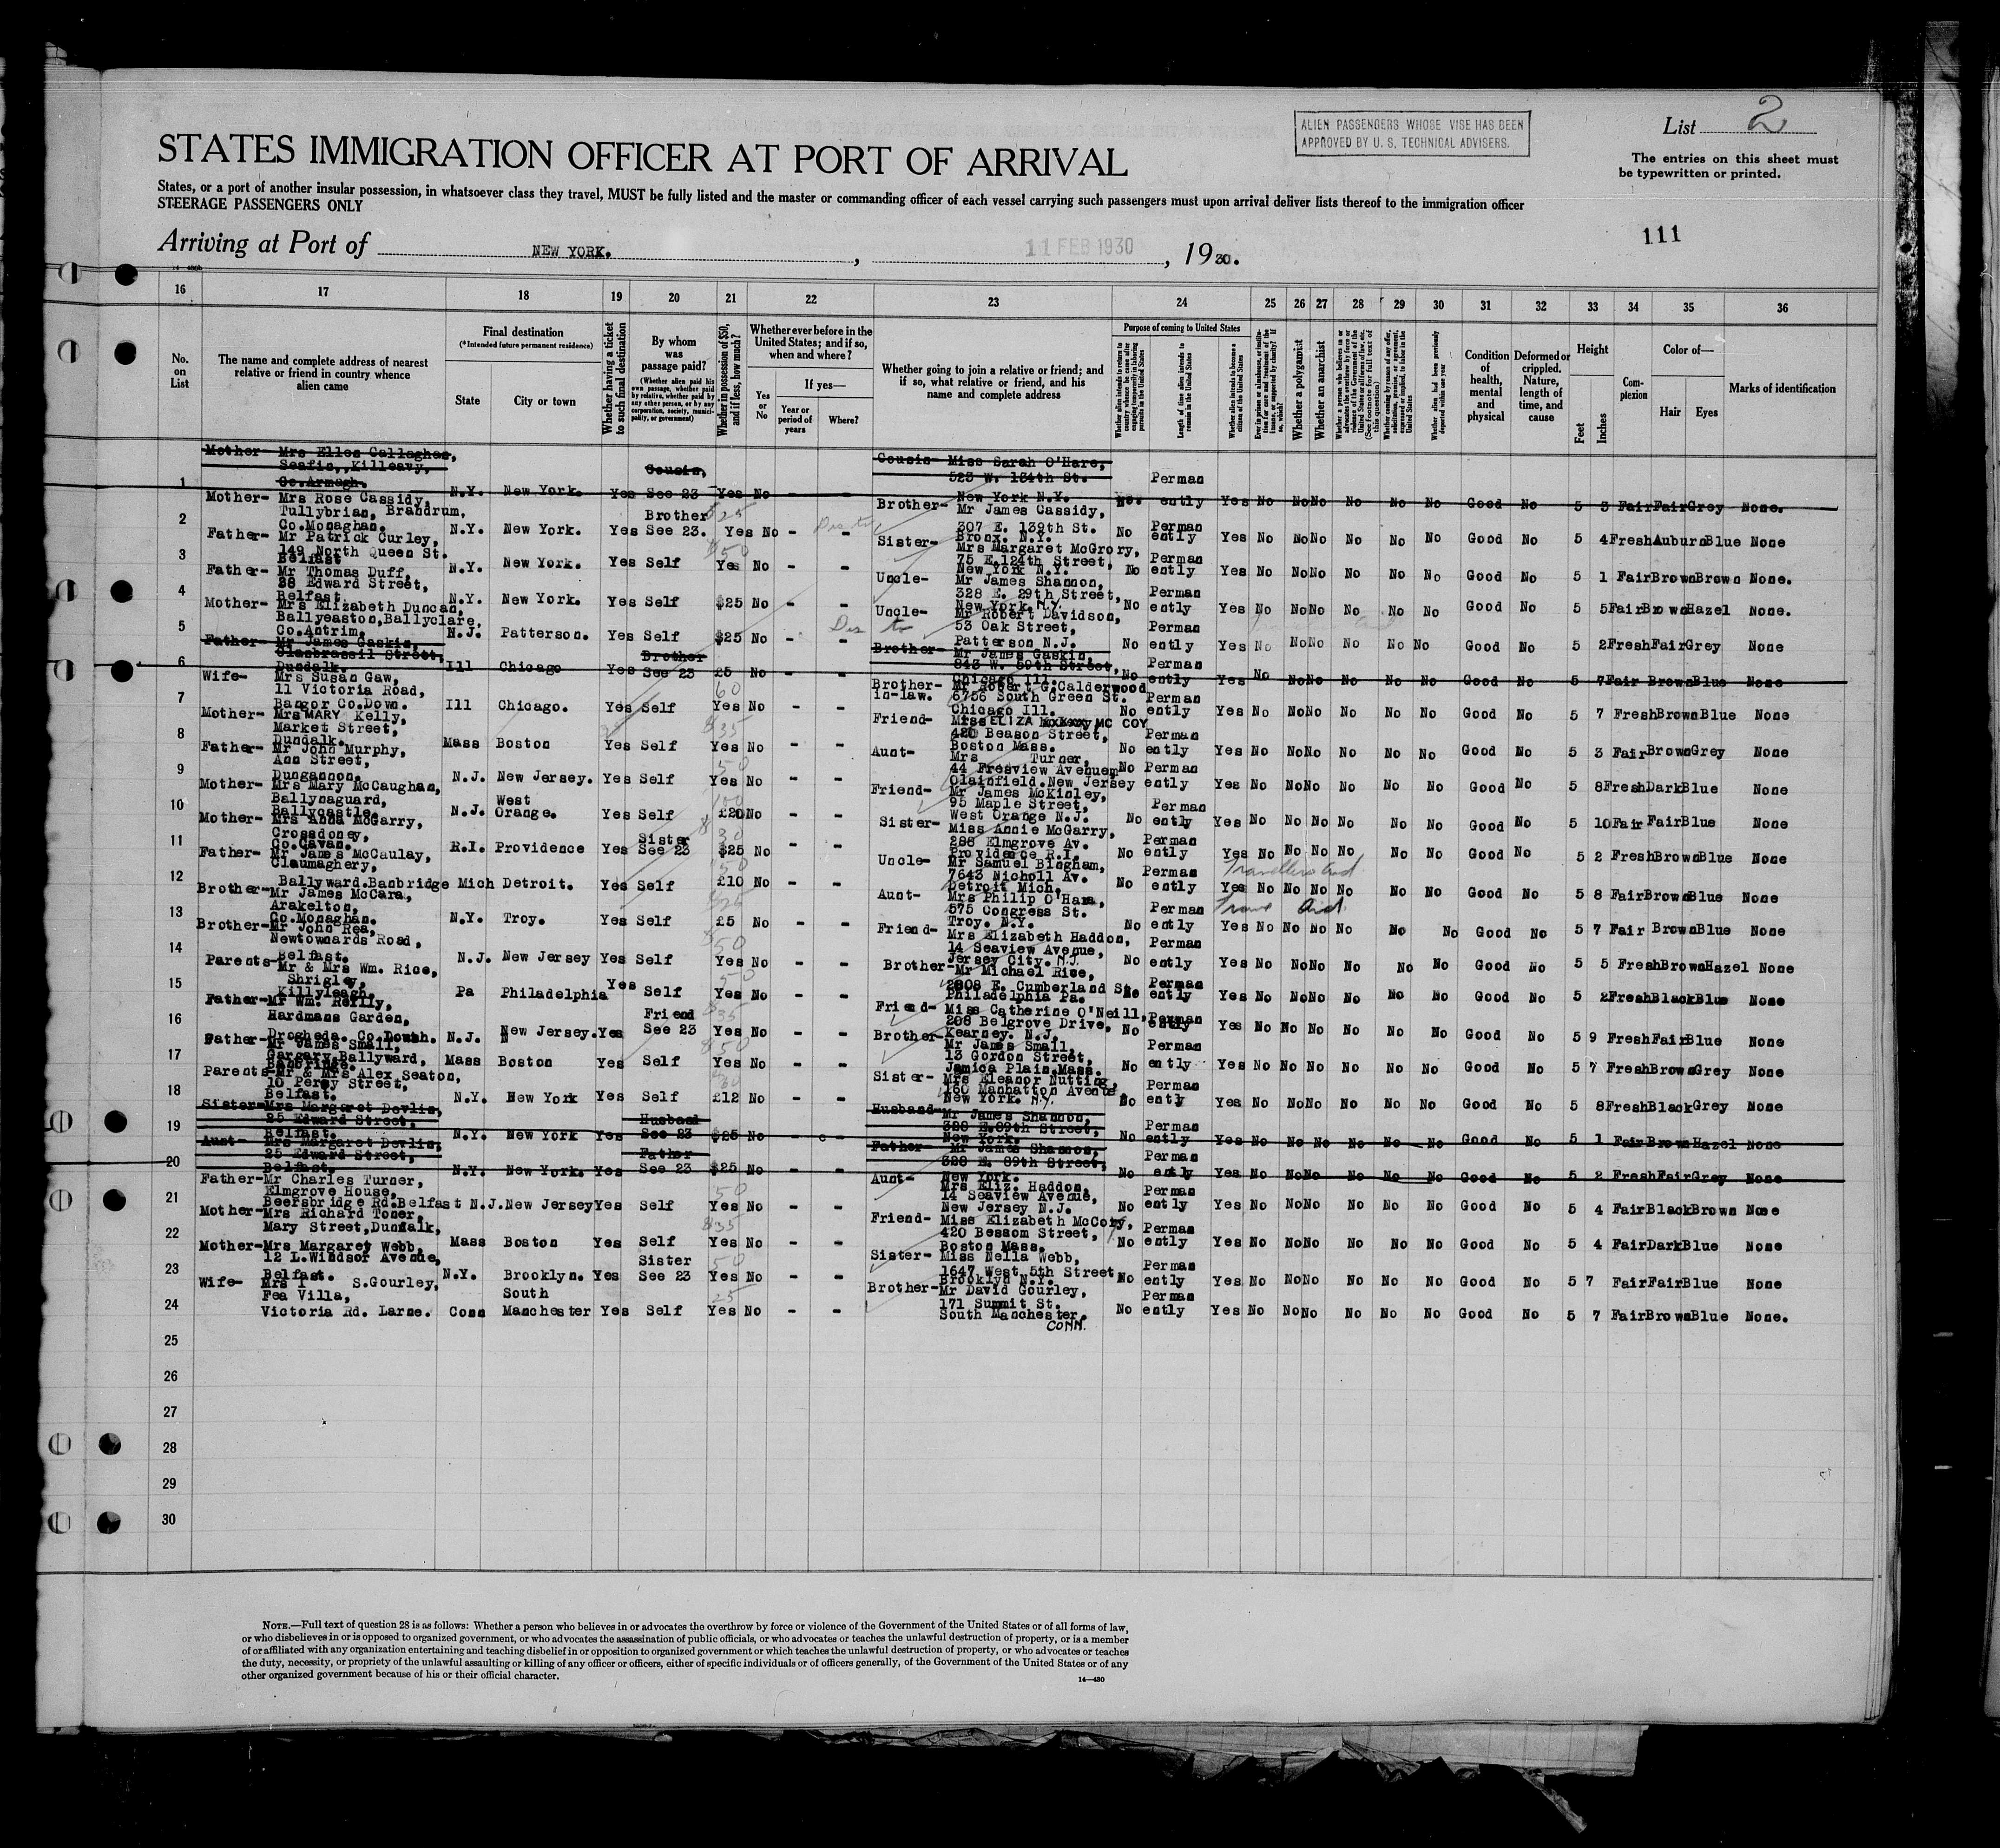 List 2
ALIEN PASSENGERS WHOSE VISE HAS BEEN
APPROVED BY U. S. TECHNICAL ADVISERS.
STATES IMMIGRATION OFFICER AT PORT OF ARRIVAL
The entries on this sheet must
be typewritten or printed.
States, or a port of another insular possession, in whatsoever class they travel, MUST be fully listed and the master or commanding officer of each vessel carrying such passengers must upon arrival deliver lists thereof to the immigration officer
STEERAGE PASSENGERS ONLY
111
Arriving at Port of NEW YORK. , 11 FEB 1930 , 1930.
16 17 18 19 20 21 22 23 24 25 26 27 28 29 30 31 32 33 34 35 36
No. on List
The name and complete address of nearest relative or friend in country whence alien came
Final destination
(*Intended future permanent residence)
State
City or town
Whether having a ticket to such final destination
By whom was passage paid?
Whether in possession of $50, and if less, how much?
Whether ever before in the United States; and if so, when and where?
Yes or No
If yes—
Year or period of years
Where?
Whether going to join a relative or friend; and if so, what relative or friend, and his name and complete address
Purpose of coming to United States
Length of time alien intends to remain in the United States
Whether alien intends to become a citizen of the United States
Whether a polygamist
Whether an anarchist
Condition of health, mental and physical
Deformed or crippled. Nature, length of time, and cause
Height
Feet
Inches
Complexion
Color of—
Hair
Eyes
Marks of identification
1 Mother- Mrs Ellen Callaghan, Seafin, Killeavy, Co.Armagh. N.Y. New York. Yes Cousin, See 23 Yes No - - Cousin- Miss Sarah O'Hare, 523 W. 134th St. New York N.Y. No. Permanently Yes No No No No No No Good No 5 3 Fair Fair Grey None.
2 Mother- Mrs Rose Cassidy, Tullybrian, Brandrum, Co.Monaghan. N.Y. New York. Yes Brother See 23. Yes No - - Brother- Mr James Cassidy, 307 E. 139th St. Bronx. N.Y. No Permanently Yes No No No No No No Good No 5 4 Fresh Auburn Blue None
3 Father- Mr Patrick Curley, 149 North Queen St. Belfast N.Y. New York. Yes Self Yes No - - Sister- Mrs Margaret McGrory, 75 E.124th Street, New York N.Y. No Permanently Yes No No No No No No Good No 5 1 Fair Brown Brown None.
4 Father- Mr Thomas Duff, 28 Edward Street, Belfast. N.Y. New York. Yes Self $25 No - - Uncle- Mr James Shannon, 328 E. 29th Street, New York N.Y. No Permanently Yes No No No No No No Good No 5 5 Fair Brown Hazel None.
5 Mother- Mrs Elizabeth Duncan, Ballyeaston,Ballyclare, Co.Antrim. N.J. Patterson. Yes Self $25 No - - Uncle- Mr Robert Davidson, 53 Oak Street, Patterson N.J. No Permanently Yes No No No No No No Good No 5 2 Fresh Fair Grey None
6 Father- Mr James Gaskin, Glasbrassil Street, Dundalk. Ill Chicago Yes Brother See 23 £5 No - - Brother- Mr James Gaskin, 843 W. 59th Street, Chicago Ill. No Permanently Yes No No No No No No Good No 5 7 Fair Brown Blue None
7 Wife- Mrs Susan Gaw, 11 Victoria Road, Bangor Co.Down. Ill Chicago. Yes Self Yes No - - Brother-in-law. Mr Robert G.Calderwood 6756 South Green St. Chicago Ill. No Permanently Yes No No No No No No Good No 5 7 Fresh Brown Blue None
8 Mother- Mrs MARY Kelly, Market Street, Dundalk. Mass Boston Yes Self Yes No - - Friend- Miss ELIZA MC COY 420 Beason Street, Boston Mass. No Permanently Yes No No No No No No Good No 5 3 Fair Brown Grey None
9 Father- Mr John Murphy, Ann Street, Dungannon. N.J. New Jersey. Yes Self Yes No - - Aunt- Mrs Turner, 44 Fresview Avenue Olainfield.New Jersey No Permanently Yes No No No No No No Good No 5 8 Fresh Dark Blue None
10 Mother- Mrs Mary McCaughan, Ballynaguard, Ballycastle. N.J. West Orange. Yes Self £20 No - - Friend- Mr James McKinley, 95 Maple Street, West Orange N.J. No Permanently Yes No No No No No No Good No 5 10 Fair Fair Blue None
11 Mother- Mrs Anna McGarry, Crossdoney, Co.Cavan. R.I. Providence Yes Sister See 23 $25 No - - Sister- Miss Annie McGarry, 288 Elmgrove Av. Providence R.I. No Permanently Yes No No No No No No Good No 5 2 Fresh Brown Blue None
12 Father- Mr James McCaulay, Claumaghery, Ballyward.Banbridge Mich Detroit. Yes Self £10 No - - Uncle- Mr Samuel Bingham, 7643 Nicholl Av. Detroit Mich. No Permanently Yes No No No No No No Good No 5 8 Fair Brown Blue None
Travellers Aid
13 Brother- Mr James McCara, Arakelton, Co.Monaghan. N.Y. Troy. Yes Self £5 No - - Aunt- Mrs Philip O'Hara, 575 Congress St. Troy. N.Y. No Permanently Yes No No No No No No Good No 5 7 Fair Brown Blue None
Trav Aid
14 Brother- Mr John Rea, Newtownards Road, Belfast. N.J. New Jersey Yes Self Yes No - - Friend- Mrs Elizabeth Haddon, 14 Seaview Avenue, Jersey City. N.J. No Permanently Yes No No No No No No Good No 5 5 Fresh Brown Hazel None
15 Parents- Mr & Mrs Wm. Rice, Shrigley, Killyleagh. Pa Philadelphia Yes Self Yes No - - Brother- Mr Michael Rice, 2808 E. Cumberland St. Philadelphia Pa. No Permanently Yes No No No No No No Good No 5 2 Fresh Black Blue None
16 Father- Mr Wm. Reilly, Hardmans Garden, Drogheda. Co.Louth. N.J. New Jersey. Yes Friend See 23 Yes No - - Friend- Miss Catherine O'Neill, 208 Belgrove Drive, Kearney. N.J. No Permanently Yes No No No No No No Good No 5 9 Fresh Fair Blue None
17 Father- Mr James Small, Gargary,Ballyward, Banbridge. Mass Boston Yes Self Yes No - - Brother- Mr James Small, 13 Gordon Street, Jamica Plain.Mass. No Permanently Yes No No No No No No Good No 5 7 Fresh Brown Grey None
18 Parents- Mr & Mrs Alex Seaton, 10 Percy Street, Belfast. N.Y. New York Yes Self £12 No - - Sister- Mrs Eleanor Nutting, 160 Manhatton Avenue, New York. N.Y. No Permanently Yes No No No No No No Good No 5 8 Fresh Black Grey None
19 Sister- Mrs Margaret Devlin, 25 Edward Street, Belfast. N.Y. New York Yes Husband See 23 $25 No - - Husband- Mr James Shannon, 328 E.89th Street, New York. No Permanently Yes No No No No No No Good No 5 1 Fair Brown Hazel None
20 Aunt- Mrs Margaret Devlin, 25 Edward Street, Belfast, N.Y. New York. Yes Father See 23 $25 No - - Father- Mr James Shannon, 328 E. 89th Street, New York. No Permanently Yes No No No No No No Good No 5 2 Fresh Fair Grey None
21 Father- Mr Charles Turner, Elmgrove House, Beersbridge Rd.Belfast N.J. New Jersey Yes Self Yes No - - Aunt- Mrs Eliz. Haddon, 14 Seaview Avenue, New Jersey N.J. No Permanently Yes No No No No No No Good No 5 4 Fair Black Brown None
22 Mother- Mrs Richard Toner, Mary Street,Dundalk, Mass Boston Yes Self Yes No - - Friend- Miss Elizabeth McCoiy, 420 Bessom Street, Boston Mass. No Permanently Yes No No No No No No Good No 5 4 Fair Dark Blue None
23 Mother- Mrs Margaret Webb, 12 L.Windsor Avenue, Belfast. N.Y. Brooklyn. Yes Sister See 23 Yes No - - Sister- Miss Nella Webb, 1647 West 5th Street Brooklyn N.Y. No Permanently Yes No No No No No No Good No 5 7 Fair Fair Blue None
24 Wife- Mrs I S.Gourley, Fea Villa, Victoria Rd. Larne. Conn South Manchester Yes Self Yes No - - Brother- Mr David Gourley, 171 Summit St. South Manchester. CONN. No Permanently Yes No No No No No No Good No 5 7 Fair Brown Blue None.
25
26
27
28
29
30
NOTE.—Full text of question 28 is as follows: Whether a person who believes in or advocates the overthrow by force or violence of the Government of the United States or of all forms of law,
or who disbelieves in or is opposed to organized government, or who advocates the assassination of public officials, or who advocates or teaches the unlawful destruction of property, or is a member
of or affiliated with any organization entertaining and teaching disbelief in or opposition to organized government or which teaches the unlawful destruction of property, or who advocates or teaches
the duty, necessity, or propriety of the unlawful assaulting or killing of any officer or officers, either of specific individuals or of officers generally, of the Government of the United States or of any
other organized government because of his or their official character.
14—430